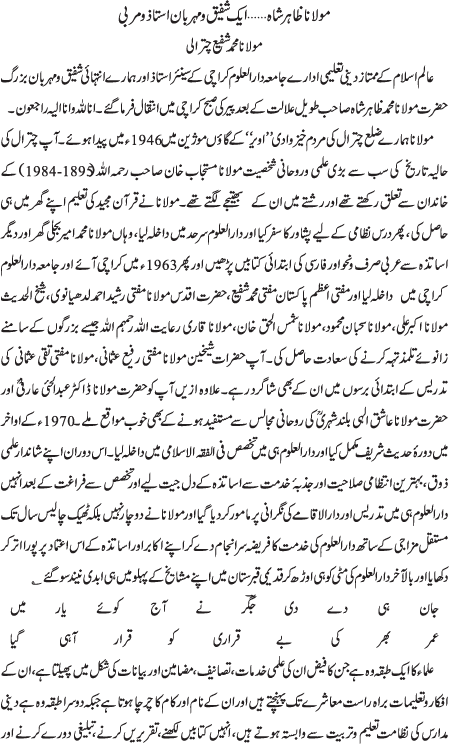 مولانا ظاہر شاہ......ایک شفیق و مہربان استاذ و مربی
مولانا محمد شفیع چترالی
عالم اسلام کے ممتاز دینی تعلیمی ادارے جامعہ دارالعلوم کراچی کے سینئر استاذ اور ہمارے انتہائی شفیق و مہربان بزرگ
حضرت مولانا محمد ظاہر شاہ صاحب طویل علالت کے بعد پیر کی صبح کراچی میں انتقال فرما گئے۔ انا للہ وانا الیہ راجعون۔
مولانا ہمارے ضلع چترال کی مردم خیز وادی ”اویر“ کے گاؤں موژین میں 1946ء میں پیدا ہوئے۔ آپ چترال کی
حالیہ تاریخ کی سب سے بڑی علمی و روحانی شخصیت مولانا مستجاب خان صاحب رحمہ اللہ (1895-1984) کے
خاندان سے تعلق رکھتے تھے اور رشتے میں ان کے بھتیجے لگتے تھے۔ مولانا نے قرآن مجید کی تعلیم اپنے گھر میں ہی
حاصل کی، پھر درس نظامی کے لیے پشاور کا سفر کیا اور دارالعلوم سرحد میں داخلہ لیا، وہاں مولانا محمد امیر بجلی گھر اور دیگر
اساتذہ سے عربی صرف و نحو اور فارسی کی ابتدائی کتابیں پڑھیں اور پھر 1963ء میں کراچی آئے اور جامعہ دارالعلوم
کراچی میں داخلہ لیا اور مفتی اعظم پاکستان مفتی محمد شفیع، حضرت اقدس مولانا مفتی رشید احمد لدھیانوی، شیخ الحدیث
مولانا اکبر علی، مولانا سحبان محمود، مولانا شمس الحق خان، مولانا قاری رعایت اللہ رحمہم اللہ جیسے بزرگوں کے سامنے
زانوئے تلمذ تہہ کرنے کی سعادت حاصل کی۔ آپ حضرات شیخین مولانا مفتی رفیع عثمانی، مولانا مفتی تقی عثمانی کی
تدریس کے ابتدائی برسوں میں ان کے بھی شاگرد رہے۔ علاوہ ازیں آپ کو حضرت مولانا ڈاکٹر عبدالحئی عارفیؒ اور
حضرت مولانا عاشق الٰہی بلند شہریؒ کی روحانی مجالس سے مستفید ہونے کے بھی خوب مواقع ملے۔ 1970ء کے اواخر
میں دورۂ حدیث شریف مکمل کیا اور دارالعلوم ہی میں تخصص فی الفقہ الاسلامی میں داخلہ لیا۔ اس دوران اپنے شاندار علمی
ذوق، بہترین انتظامی صلاحیت اور جذبۂ خدمت سے اساتذہ کے دل جیت لیے اور تخصص سے فراغت کے بعد انہیں
دارالعلوم ہی میں تدریس اور دارالاقامے کی نگرانی پر مامور کر دیا گیا اور مولانا نے دو چار نہیں بلکہ ٹھیک چالیس سال تک
مستقل مزاجی کے ساتھ دارالعلوم کی خدمت کا فریضہ سرانجام دے کر اپنے اکابر اور اساتذہ کے اس اعتماد پر پورا اتر کر
دکھایا اور بالآخر دارالعلوم کی مٹی کو ہی اوڑھ کر قدیمی قبرستان میں اپنے مشایخ کے پہلو میں ہی ابدی نیند سو گئے ؎
جان ہی دے دی جگرؔ نے آج کوئے یار میں
عمر بھر کی بے قراری کو قرار آ ہی گیا
علماء کا ایک طبقہ وہ ہے جن کا فیض ان کی علمی خدمات، تصانیف، مضامین اور بیانات کی شکل میں پھیلتا ہے، ان کے
افکار و تعلیمات براہ راست معاشرے تک پہنچتے ہیں اور ان کے نام اور کام کا چرچا ہوتا ہے جبکہ دوسرا طبقہ وہ ہے دینی
مدارس کی نظامت تعلیم و تربیت سے وابستہ ہوتے ہیں، انہیں کتابیں لکھنے، تقریریں کرنے، تبلیغی دورے کرنے اور